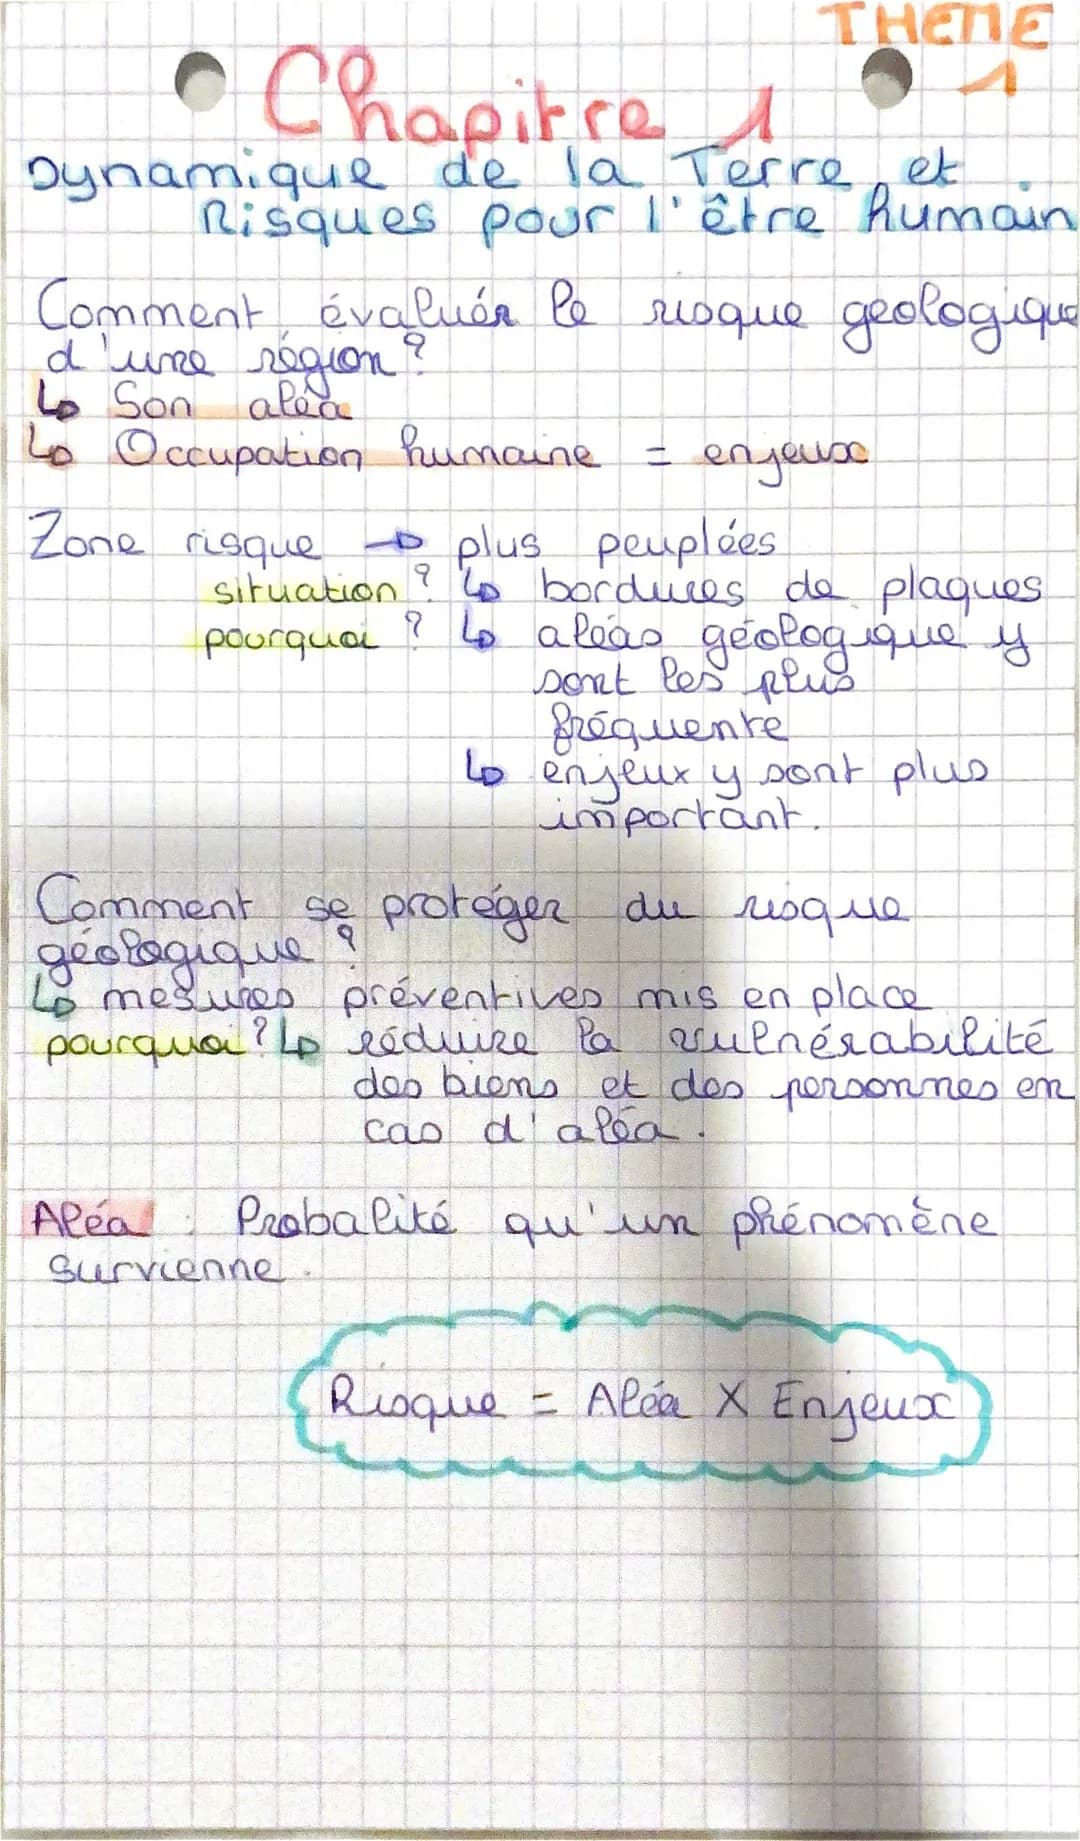 THEME
1
Chapitre 1
Dynamique de la Terre et
Risques pour l'être humain
Comment évaluér le risque géologique
d'une région ?
↳ Son aléa
↳ Occupation humaine = enjeux
Zone risque → plus peuplées
situation ? ↳ bordures de plaques
pourquoi ? ↳ aléas géologique y
sont les plus
fréquente
↳ enjeux y sont plus
important.
Comment se protéger du risque
géologique ?
↳ mesures préventives mis en place
pourquoi ? ↳ réduire la vulnérabilité
des biens et des personnes en
cas d'aléa.
Aléa : Probalité qu'un phénomène
survienne.
Risque = Aléa X Enjeux